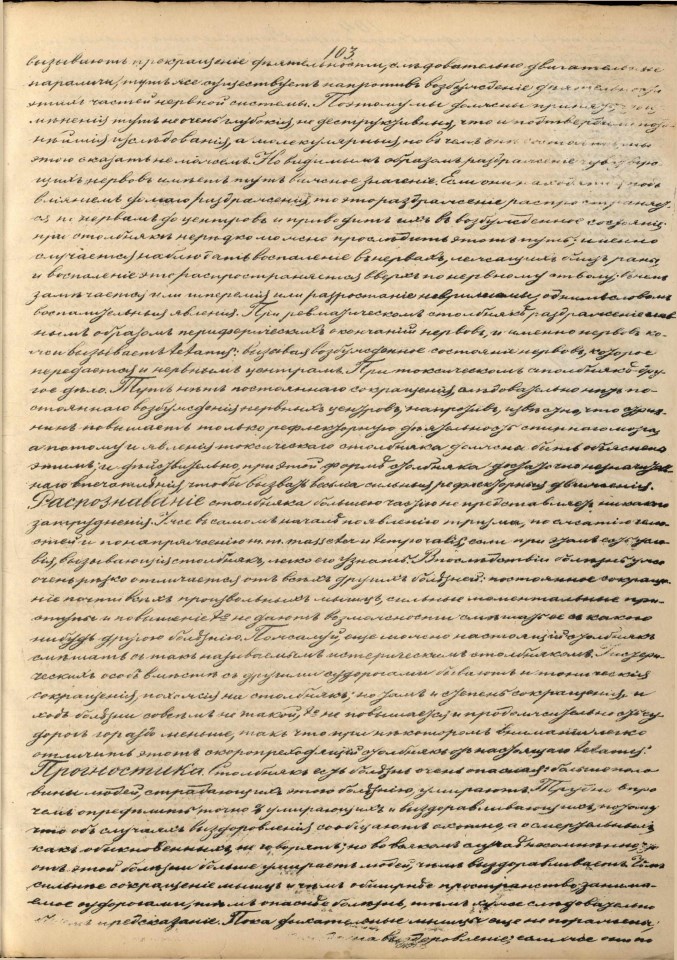 103
вызываютъ прекращеніе дѣятельности, слѣдовательно двигательные
параличи, тутъ же существуетъ напротивъ возбужденіе дѣятельности
этихъ частей нервной системы. Поэтому мы должны принять, что
мѣненія тутъ не очень глубокія, не деструктивныя, что и подтвердили позд-
нѣйшія изслѣдованія, а молекулярныя, но въ чемъ они состоятъ, мы
этого сказать не можемъ. Но видимымъ образомъ раздраженіе чувствую-
щихъ нервовъ имѣетъ тутъ важное значеніе. Если они находятся подъ
вліяніемъ долгаго раздраженія, то это раздраженіе распространяет-
ся по нервамъ до центровъ и приводитъ ихъ въ возбужденное состояніе;
при столбнякѣ нерѣдко можно прослѣдить этотъ путь; именно
случается наблюдать воспаленіе въ нервахъ, лежащихъ близъ раны
и воспаленіе это распространяется вверхъ по нервному стволу, и очень
замѣчается или гиперемія или разростаніе невриллемы, однимъ словомъ
воспалительныя явленія. При ревматическомъ столбнякѣ раздраженіе глав-
нымъ образомъ периферическихъ окончаній нервовъ, и именно нервовъ ко-
жи вызываетъ tetanus: вызывая возбужденное состояніе нервовъ, которое
передается и нервнымъ центрамъ. При токсическомъ столбнякѣ дру-
гое дѣло. Тутъ нѣтъ постояннаго сокращенія, слѣдовательно нѣтъ по-
стояннаго возбужденія нервныхъ центровъ, напротивъ, извѣстно, что стрих-
нинъ повышаетъ только рефлекторную дѣятельность спиннаго мозга,
а потому и явленія токсическаго столбняка должны быть объяснены
этимъ; и дѣйствительно, при этой формѣ столбняка достаточно незначитель-
наго впечатлѣнія, чтобы вызвать весьма сильныя рефлекторныя движенія.
Распознаваніе столбняка большею частію не представляетъ никакого
затрудненія. Уже въ самомъ началѣ по явленію тризма, по сжатію челю-
стей и по напряженію m.m. masseter и temporalis, если при этомъ есть усло-
вія, вызывающія столбнякъ, легко его узнать. Впослѣдствіи болѣзнь уже
очень рѣзко отличается отъ всѣхъ другихъ болѣзней: постоянное сокраще-
ніе почти всѣхъ произвольныхъ мышцъ, сильные моментальные при-
ступы и повышеніе t° не даютъ возможности смѣшать ее съ какою
нибудь другою болѣзнію. Пожалуй еще можно настоящій столбнякъ
смѣшать съ такъ называемымъ истерическимъ столбнякомъ. У истери-
ческихъ особъ вмѣстѣ съ другими судорогами бываютъ и тоническія
сокращенія, похожія на столбнякъ; но тамъ и степень сокращенія, и
ходъ болѣзни совсѣмъ не такой, t° не повышается и продолжительность су-
дорогъ гораздо меньше, такъ что при нѣкоторомъ вниманіи легко
отличить этотъ скоропреходящій столбнякъ отъ настоящаго tetanus.
Прогностика. Столбнякъ есть болѣзнь очень опасная: больше поло-
вины людей, страдающихъ этою болѣзнію, умираютъ. Трудно впро-
чемъ опредѣлить точно % умирающихъ и выздоравливающихъ, потому
что объ случаяхъ выздоровленія сообщаютъ охотно, а о смертельныхъ,
какъ обыкновенныхъ, не говорятъ; но во всякомъ случаѣ несомнѣнно, что
отъ этой болѣзни больше умираетъ людей, чѣмъ выздоравливаетъ. Чѣмъ
сильнѣе сокращеніе мышцъ и чѣмъ обширнѣе пространство занима-
емое судорогами, тѣмъ опаснѣе болѣзнь, тѣмъ хуже слѣдовательно
предсказаніе. Пока дыхательныя мышцы еще не поражены,
на выздоровленіе; если же они по